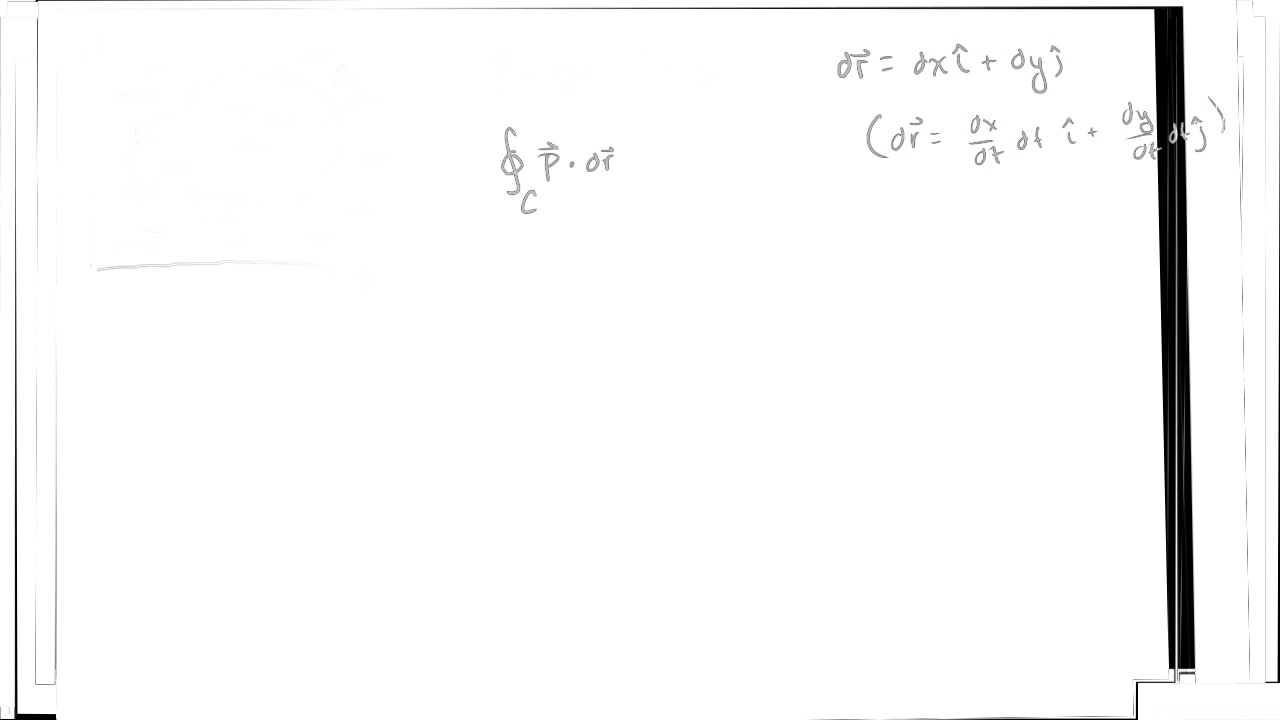 dr⃗ = dx î + dy ĵ
(dr⃗ = dx/dt dt î + dy/dt dt ĵ)
∮_C P⃗ · dr⃗